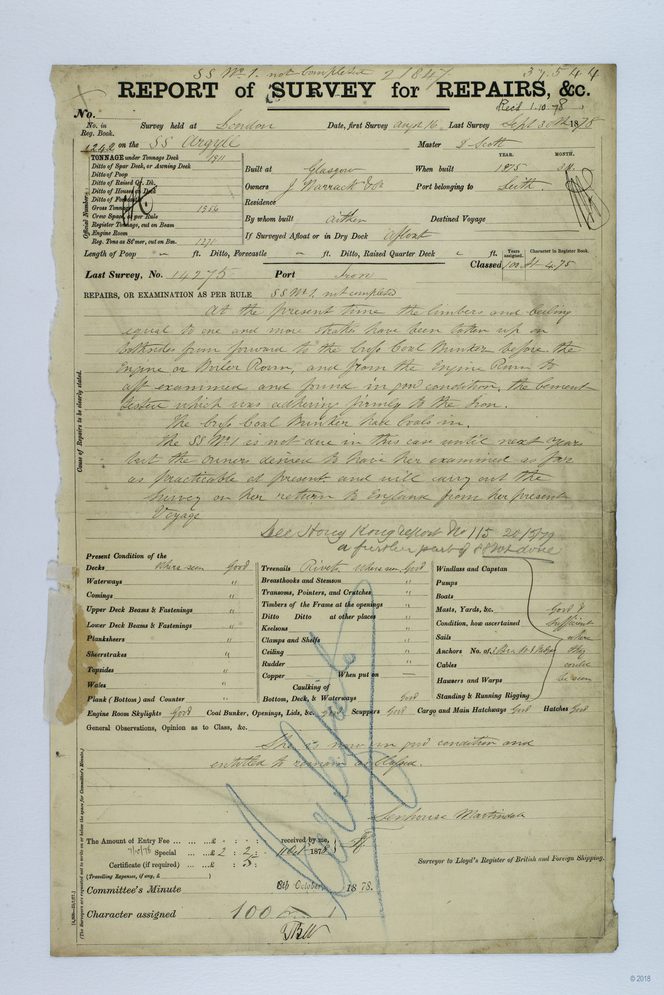 SS No 1. not Completed 21847. 37544
REPORT of SURVEY for REPAIRS, &c.
Recd 1.10.78
No.
No. in Reg. Book. Survey held at London Date, first Survey Augst 16 Last Survey Sept 30th 1878
1242 on the SS Argyle Master Scott
TONNAGE under Tonnage Deck 1811
Ditto of Spar Deck, or Awning Deck
Ditto of Poop
Ditto of Raised Qr. Dk.
Ditto of Houses on Deck
Ditto of Forecastle
Gross Tonnage 1956
Crew Space, as per Rule
Register Tonnage, cut on Beam
Engine Room
Reg. Tons as SS'mer, cut on Bm. 1271
Official Number
YEAR. MONTH.
Built at Glasgow When built 1875 3M.
Owners J. Warrack & Co Port belonging to Leith.
Residence
By whom built Aitken Destined Voyage
If Surveyed Afloat or in Dry Dock Afloat
Length of Poop ft. Ditto, Forecastle ft. Ditto, Raised Quarter Deck ft.
Years assigned. Character in Register Book.
Classed 100 A1 4.75
Last Survey, No. 14275 Port Iron
REPAIRS, OR EXAMINATION AS PER RULE SS No 1. not completed
At the present time the limbers and ceiling
equal to one and more strakes have been taken up on
bothsides from forward to the Cross Coal Bunker before the
Engine or Boiler Room, and from the Engine Room to
aft examined and found in good condition, the cement
tested which was adhering firmly to the Iron.
The Cross Coal Bunker had Coals in.
The SS No 1 is not due in this case until next year
but the owners desired to have her examined as far
as practicable at present and will carry out the
Survey on her return to England from her present
Voyage
See Hong Kong report No 115
a further part of SS No 1 done
Cause of Repairs to be clearly stated.
Present Condition of the
Decks where seen Good
Waterways "
Comings "
Upper Deck Beams & Fastenings "
Lower Deck Beams & Fastenings "
Planksheers "
Sheerstrakes "
Topsides "
Wales "
Plank (Bottom) and Counter "
Treenails Rivets where seen Good
Breasthooks and Stemson "
Transoms, Pointers, and Crutches "
Timbers of the Frame at the openings "
Ditto Ditto at other places "
Keelsons "
Clamps and Shelfs "
Ceiling "
Rudder "
Copper When put on
Caulking of
Bottom, Deck, & Waterways Good
Windlass and Capstan
Pumps
Boats
Masts, Yards, &c.
Condition, how ascertained
Sails
Anchors No. of
Cables
Hawsers and Warps
Standing & Running Rigging
Good &
Sufficient
where
they
could
be seen
Engine Room Skylights Good Coal Bunker, Openings, Lids, &c. Scuppers Good Cargo and Main Hatchways Good Hatches Good
General Observations, Opinion as to Class, &c.
She is now in good condition and
entitled to remain as Classed.
Martindale
The Amount of Entry Fee ... ... ...£ : : received by me,
7/10/78 Special ... ...£ 2 : 2 : 1878
Certificate (if required) ... £ : 5 :
(Travelling Expenses, if any, £ )
Surveyor to Lloyd's Register of British and Foreign Shipping.
Committee's Minute 8th October 1878.
Character assigned 100 A 1
(The Surveyors are requested not to write on or below the space for Committee's Minute.)
© 2018